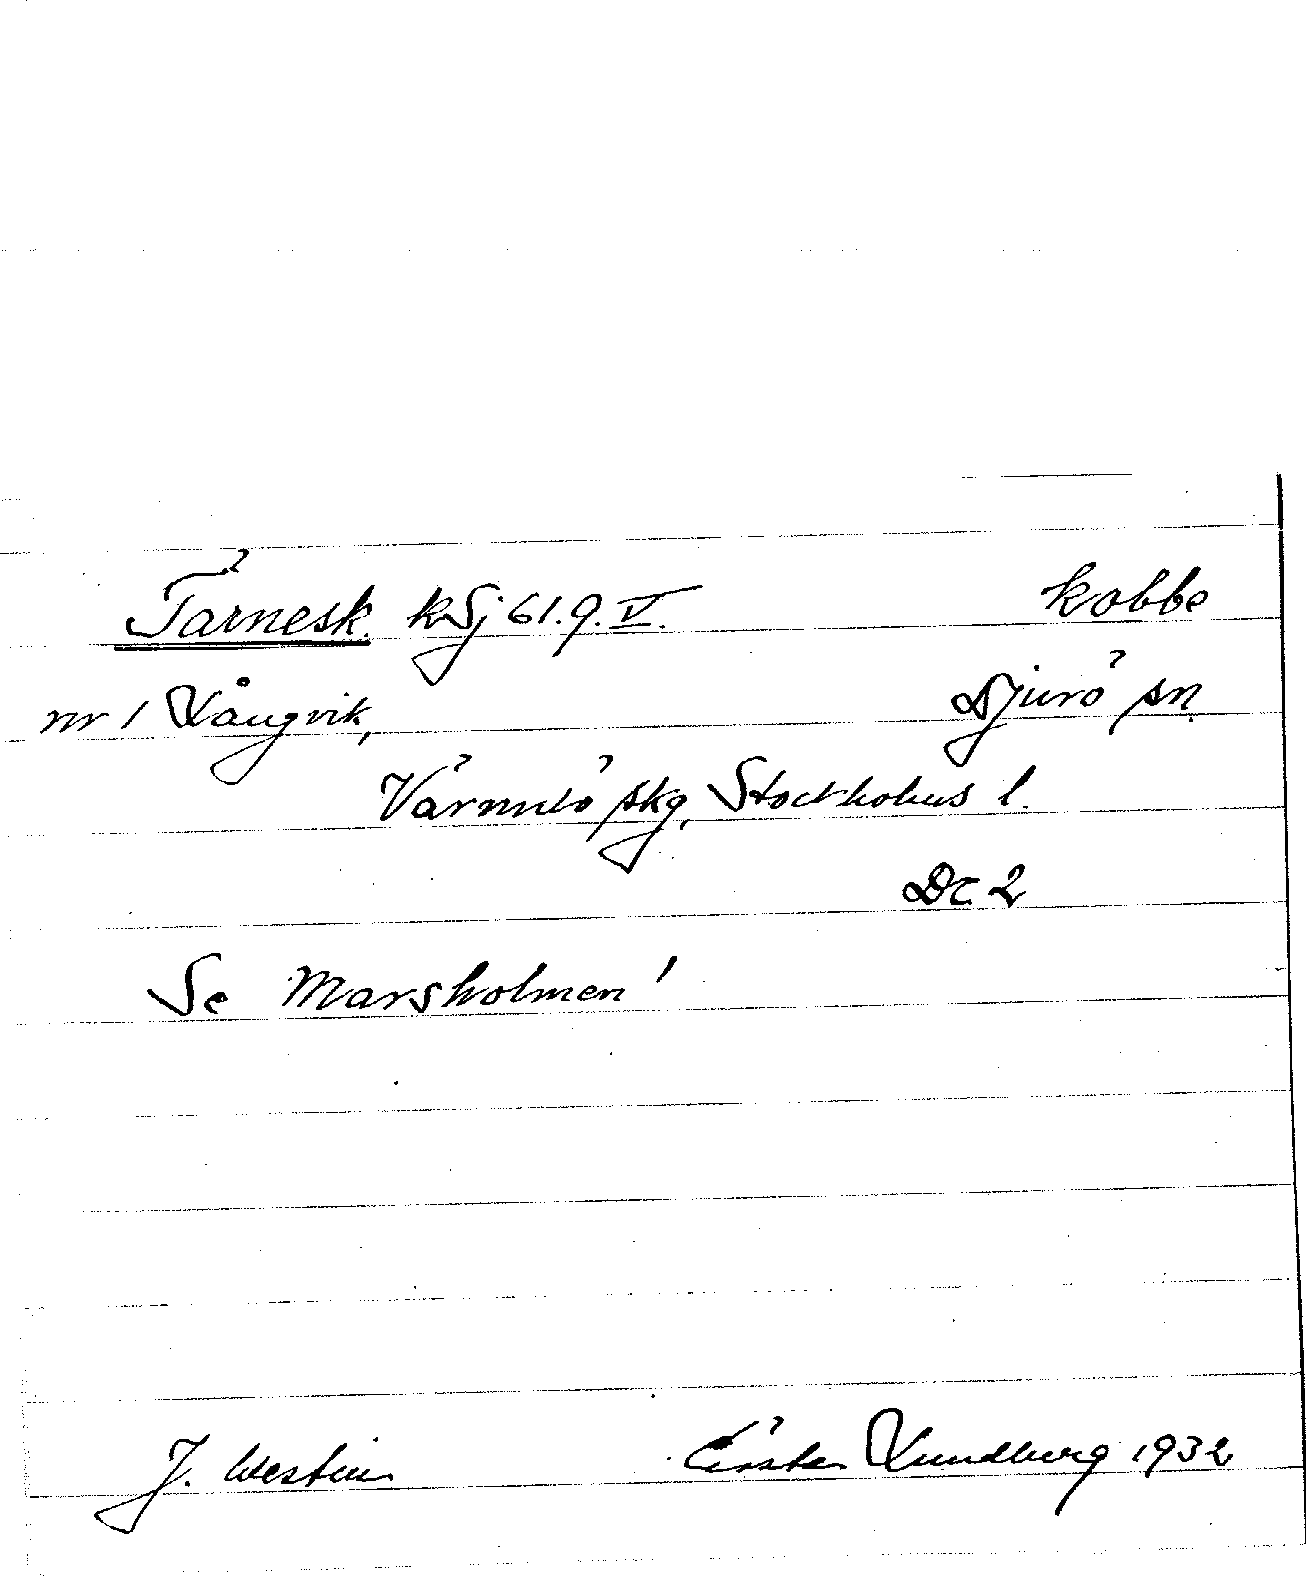 Tärnesk. kSj 61.9.V. kobbe
nr 1 Långvik, Djurö sn
Värmdö skg, Stockholms l.
Dc 2
Se Marsholmen!
J. Westin Gösta Lundberg 1932